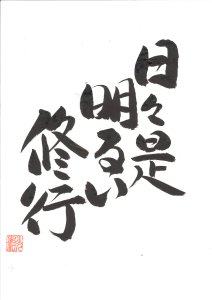 日々是
明るい
修行